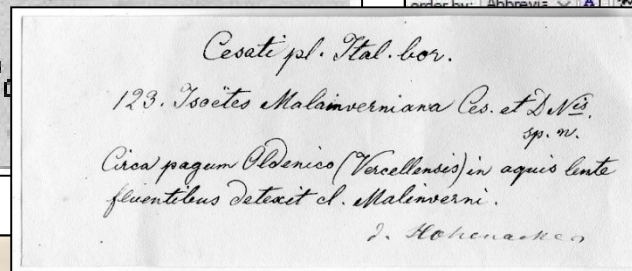 order by: Abbrevia
Cesati pl. Ital. bor.
123. Isoëtes Malainverniana Ces. et D Nis.
sp. n.
Circa pagum Oldenico (Vercellensis) in aquis lente
fluentibus detexit cl. Malinverni.
J. Hohenacker